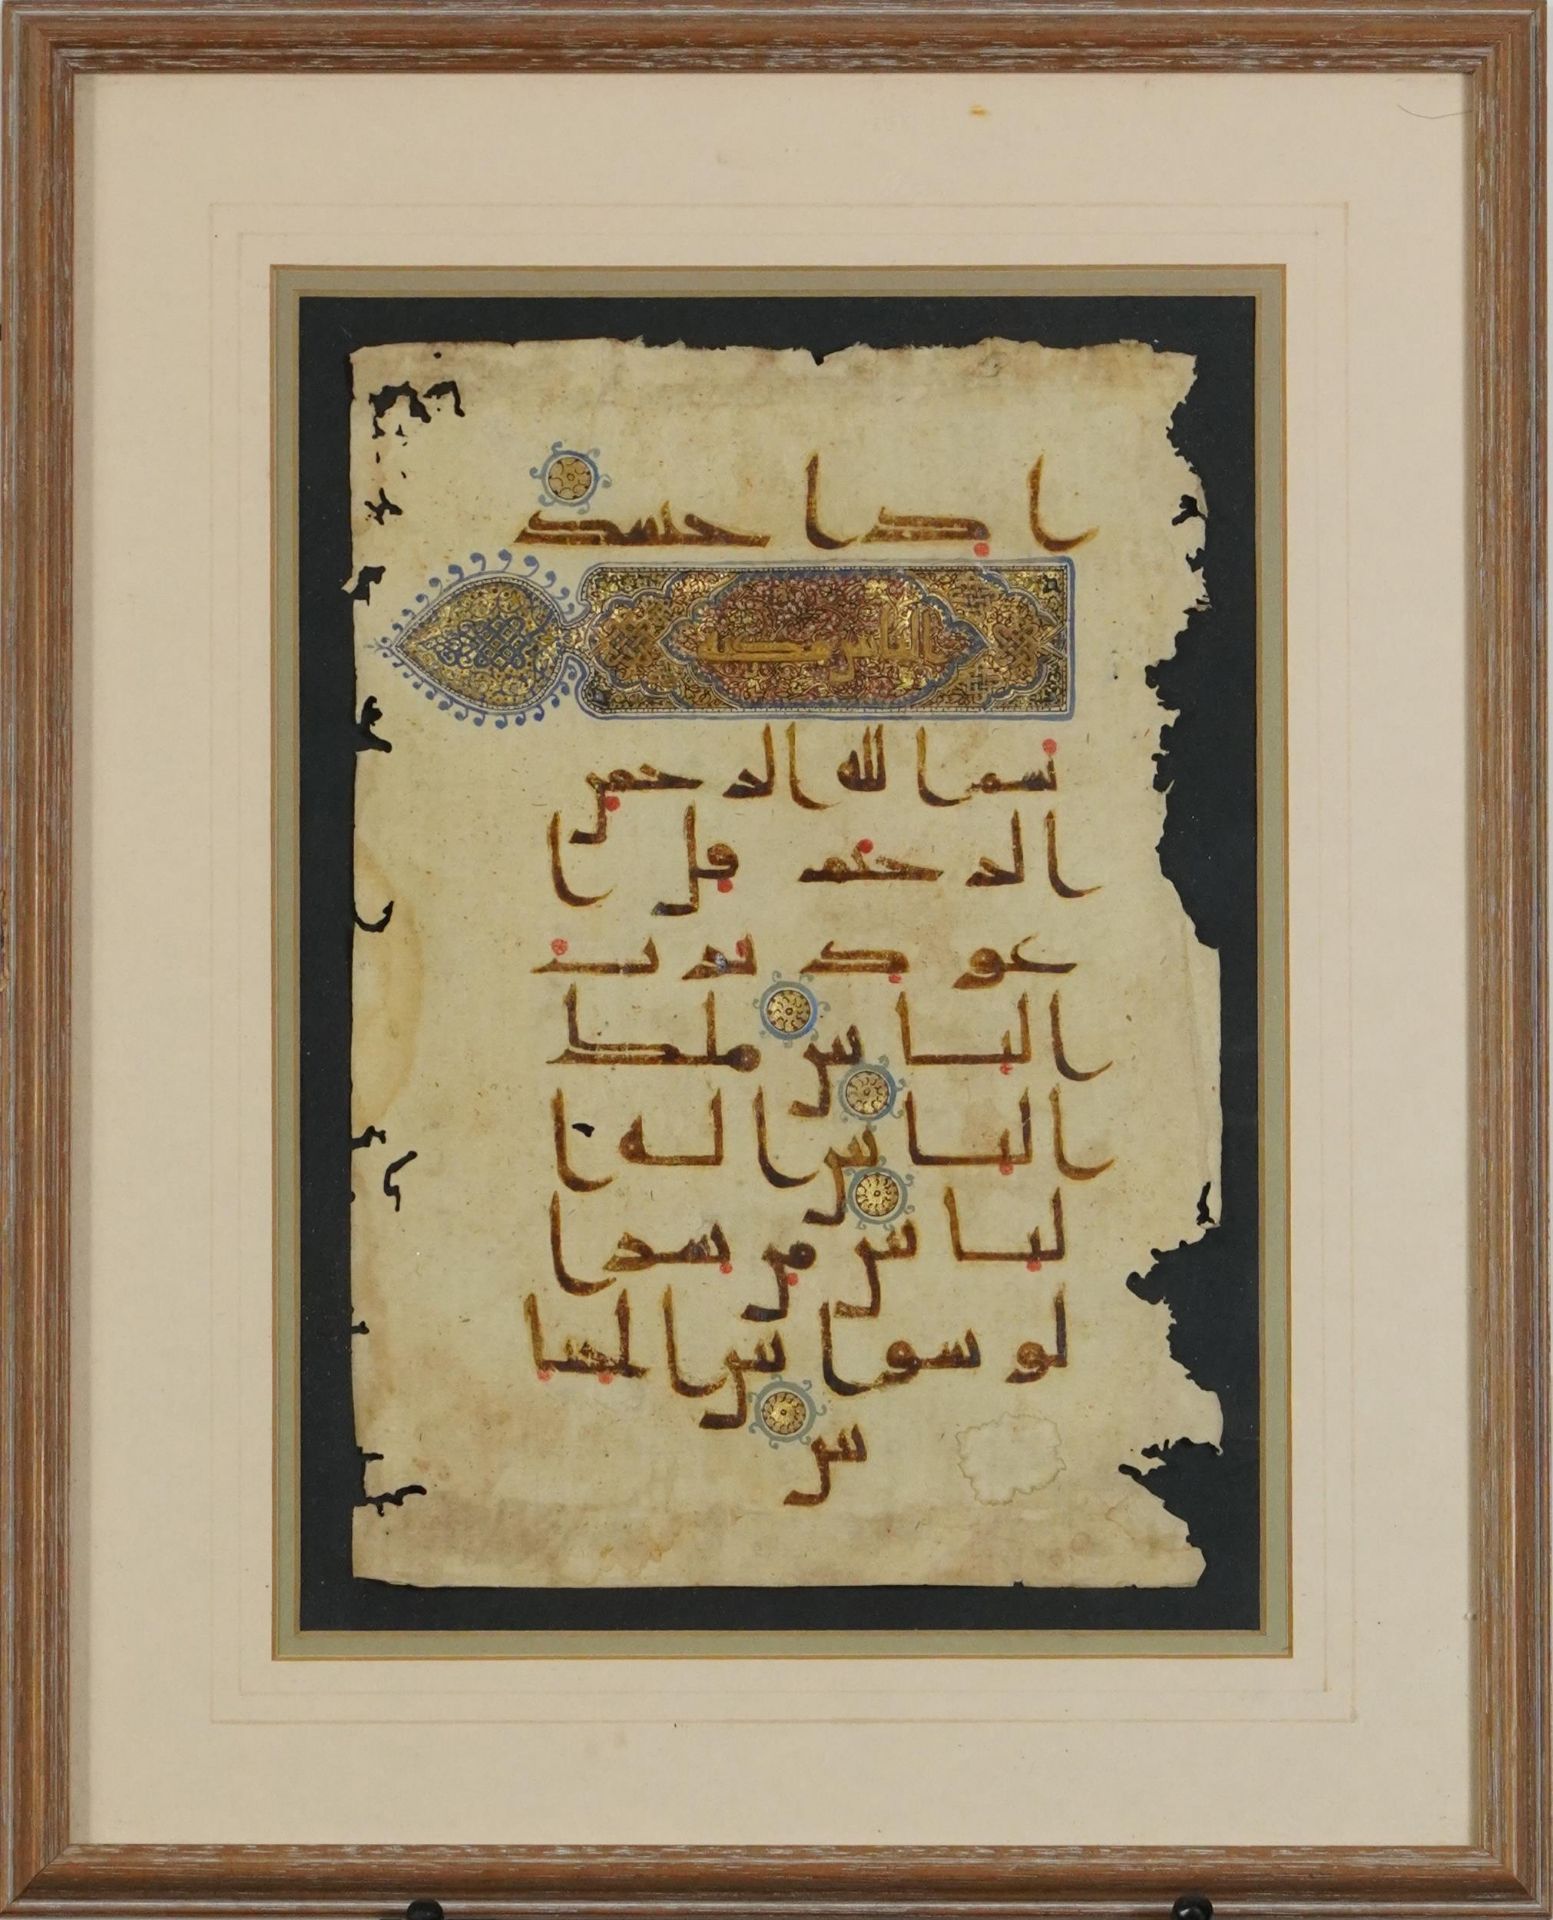 اذا حسد
الناس مكية
بسم الله الرحمن
الرحيم قل ا
عوذ برب
الناس ملك
الناس اله ا
لناس من شر ا
لوسواس الخنا
س